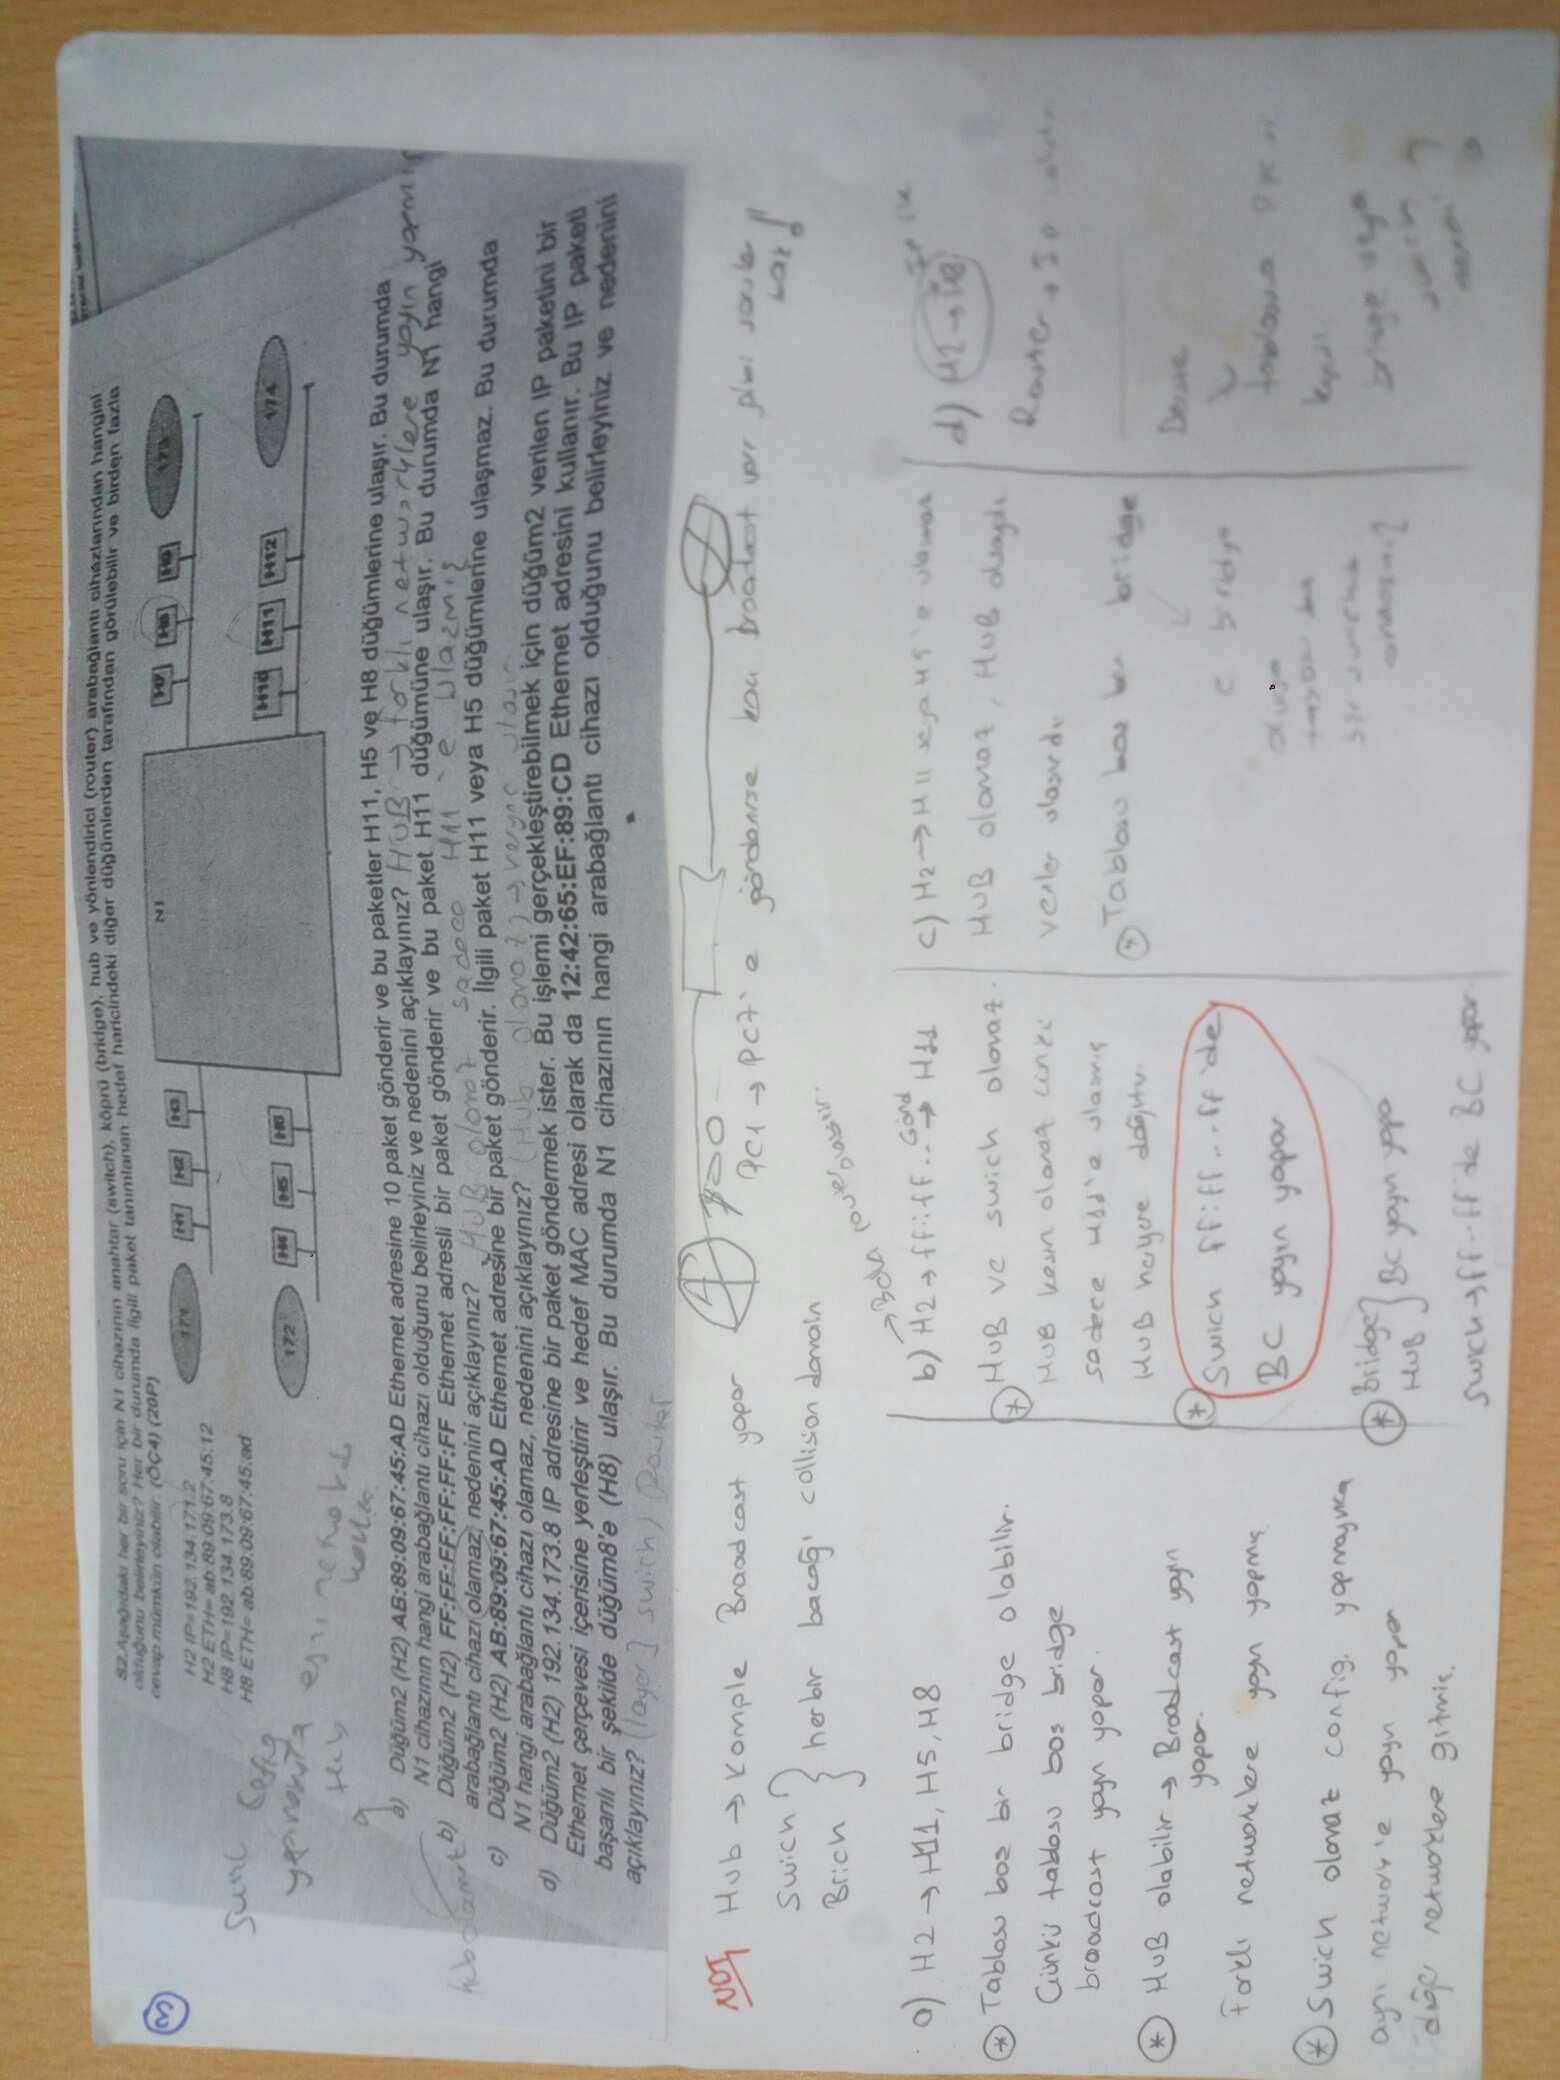 3
S2.Aşağıdaki her bir soru için N1 cihazının anahtar (switch), köprü (bridge), hub ve yönlendirici (router) arabağlantı cihazlarından hangisi
olduğunu belirleyiniz? Her bir durumda ilgili paket tanımlanan hedef haricindeki diğer düğümlerden tarafından görülebilir ve birden fazla
cevap mümkün olabilir. (ÖÇ4) (20P)
H2 IP=192.134.171.2
H2 ETH= ab:89:09:67:45:12
H8 IP=192.134.173.8
H8 ETH= ab:89:09:67:45:ad
171 H1 H2 H3 N1 H7 H8 H9 173
172 H4 H5 H6 H10 H11 H12 174
Hub
a) Düğüm2 (H2) AB:89:09:67:45:AD Ethernet adresine 10 paket gönderir ve bu paketler H11, H5 ve H8 düğümlerine ulaşır. Bu durumda
N1 cihazının hangi arabağlantı cihazı olduğunu belirleyiniz ve nedenini açıklayınız? HUB → farklı networklere yayın yapmış
b) Düğüm2 (H2) FF:FF:FF:FF:FF:FF Ethernet adresli bir paket gönderir ve bu paket H11 düğümüne ulaşır. Bu durumda N1 hangi
arabağlantı cihazı olamaz, nedenini açıklayınız? HUB olamaz sadece H11'e ulaşmış
c) Düğüm2 (H2) AB:89:09:67:45:AD Ethernet adresine bir paket gönderir. İlgili paket H11 veya H5 düğümlerine ulaşmaz. Bu durumda
N1 hangi arabağlantı cihazı olamaz, nedenini açıklayınız? (Hub olamaz) →
d) Düğüm2 (H2) 192.134.173.8 IP adresine bir paket göndermek ister. Bu işlemi gerçekleştirebilmek için düğüm2 verilen IP paketini bir
Ethernet çerçevesi içerisine yerleştirir ve hedef MAC adresi olarak da 12:42:65:EF:89:CD Ethernet adresini kullanır. Bu IP paketi
başarılı bir şekilde düğüm8'e (H8) ulaşır. Bu durumda N1 cihazının hangi arabağlantı cihazı olduğunu belirleyiniz ve nedenini
açıklayınız? (layer 3 swich) Router
NOT
Hub → Komple Broadcast yapar
PC1 → PC7'e gönderirse kaç broadcast var gibi sorular
var!
Swich
Brich } herbir bacağı collision domain
a) H2 → H11, H5, H8
* Tablosu boş bir bridge olabilir.
Çünkü tablosu boş bridge
broadcast yayın yapar.
* HUB olabilir → Broadcast yayın
yapar.
Farklı networklere yayın yapmış
* Swich olamaz config. yapmayınca
aynı network'e yayın yapar
diğer networklere gitmiş.
→ Bola router olabilir.
b) H2 → ff:ff.. Gönd → H11
* HUB ve swich olamaz.
HUB kesin olamaz çünkü
sadece H11'e ulaşmış
HUB heryere dağıtır.
* Swich ff:ff...ff'de
BC yayın yapar
* Bridge
HUB } BC yayın yapar
Swich → ff..ff'de BC yapar.
c) H2 → H11 veya H5'e ulaşmaz
HUB olamaz, HUB olsaydı
veriler ulaşırdı
* Tablosu boş bir bridge
d) H2 → H8 IP ile
Router →
bridge veya